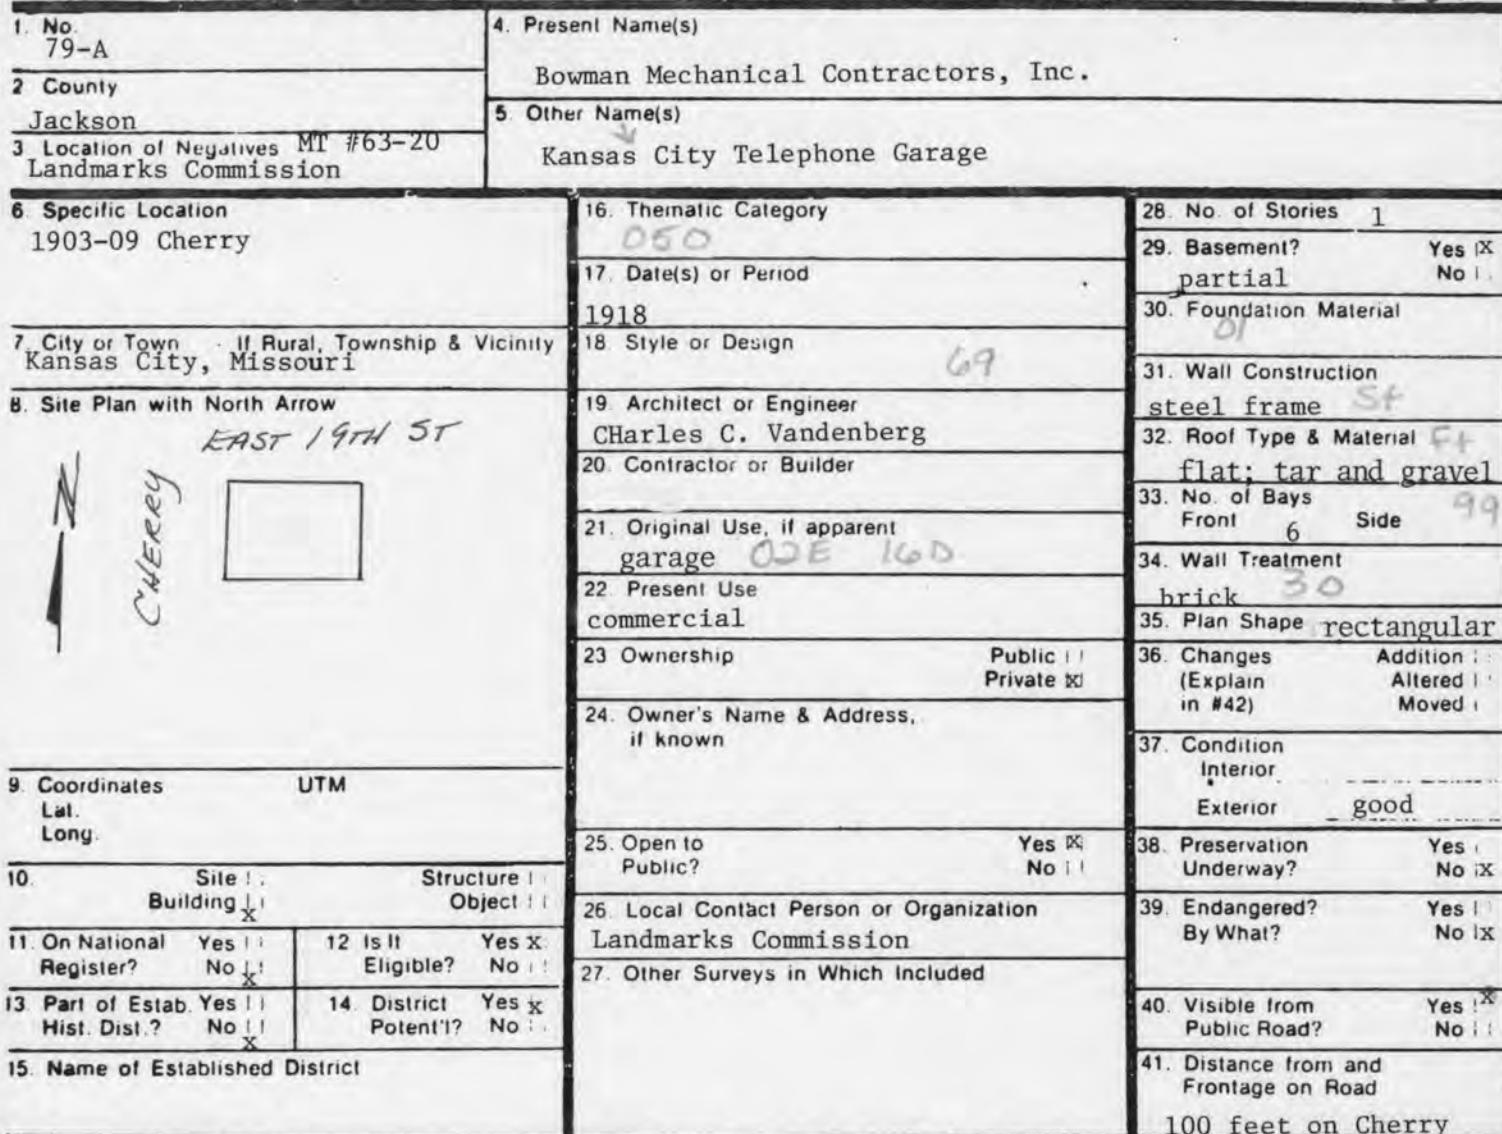 1. No.
79-A
2 County
Jackson
3 Location of Negatives MT #63-20
Landmarks Commission
4. Present Name(s)
Bowman Mechanical Contractors, Inc.
5. Other Name(s)
Kansas City Telephone Garage
6. Specific Location
1903-09 Cherry
7. City or Town If Rural, Township & Vicinity
Kansas City, Missouri
8. Site Plan with North Arrow
EAST 19TH ST
N
CHERRY
9. Coordinates UTM
Lat.
Long.
10. Site Structure
Building X Object
11. On National Yes
Register? No X
12 Is It Yes X
Eligible? No
13. Part of Estab. Yes
Hist. Dist.? No X
14. District Yes X
Potent'l? No
15. Name of Established District
16. Thematic Category
050
17. Date(s) or Period
1918
18. Style or Design
69
19. Architect or Engineer
CHarles C. Vandenberg
20. Contractor or Builder
21. Original Use, if apparent
garage 02E 16D
22. Present Use
commercial
23 Ownership Public
Private X
24. Owner's Name & Address,
if known
25. Open to Yes X
Public? No
26. Local Contact Person or Organization
Landmarks Commission
27. Other Surveys in Which Included
28. No. of Stories 1
29. Basement? Yes X
partial No
30. Foundation Material
01
31. Wall Construction
steel frame St
32. Roof Type & Material Ft
flat; tar and gravel
33. No. of Bays 99
Front 6 Side
34. Wall Treatment
brick 30
35. Plan Shape rectangular
36. Changes Addition
(Explain Altered
in #42) Moved
37. Condition
Interior
Exterior good
38. Preservation Yes
Underway? No X
39. Endangered? Yes
By What? No X
40. Visible from Yes X
Public Road? No
41. Distance from and
Frontage on Road
100 feet on Cherry